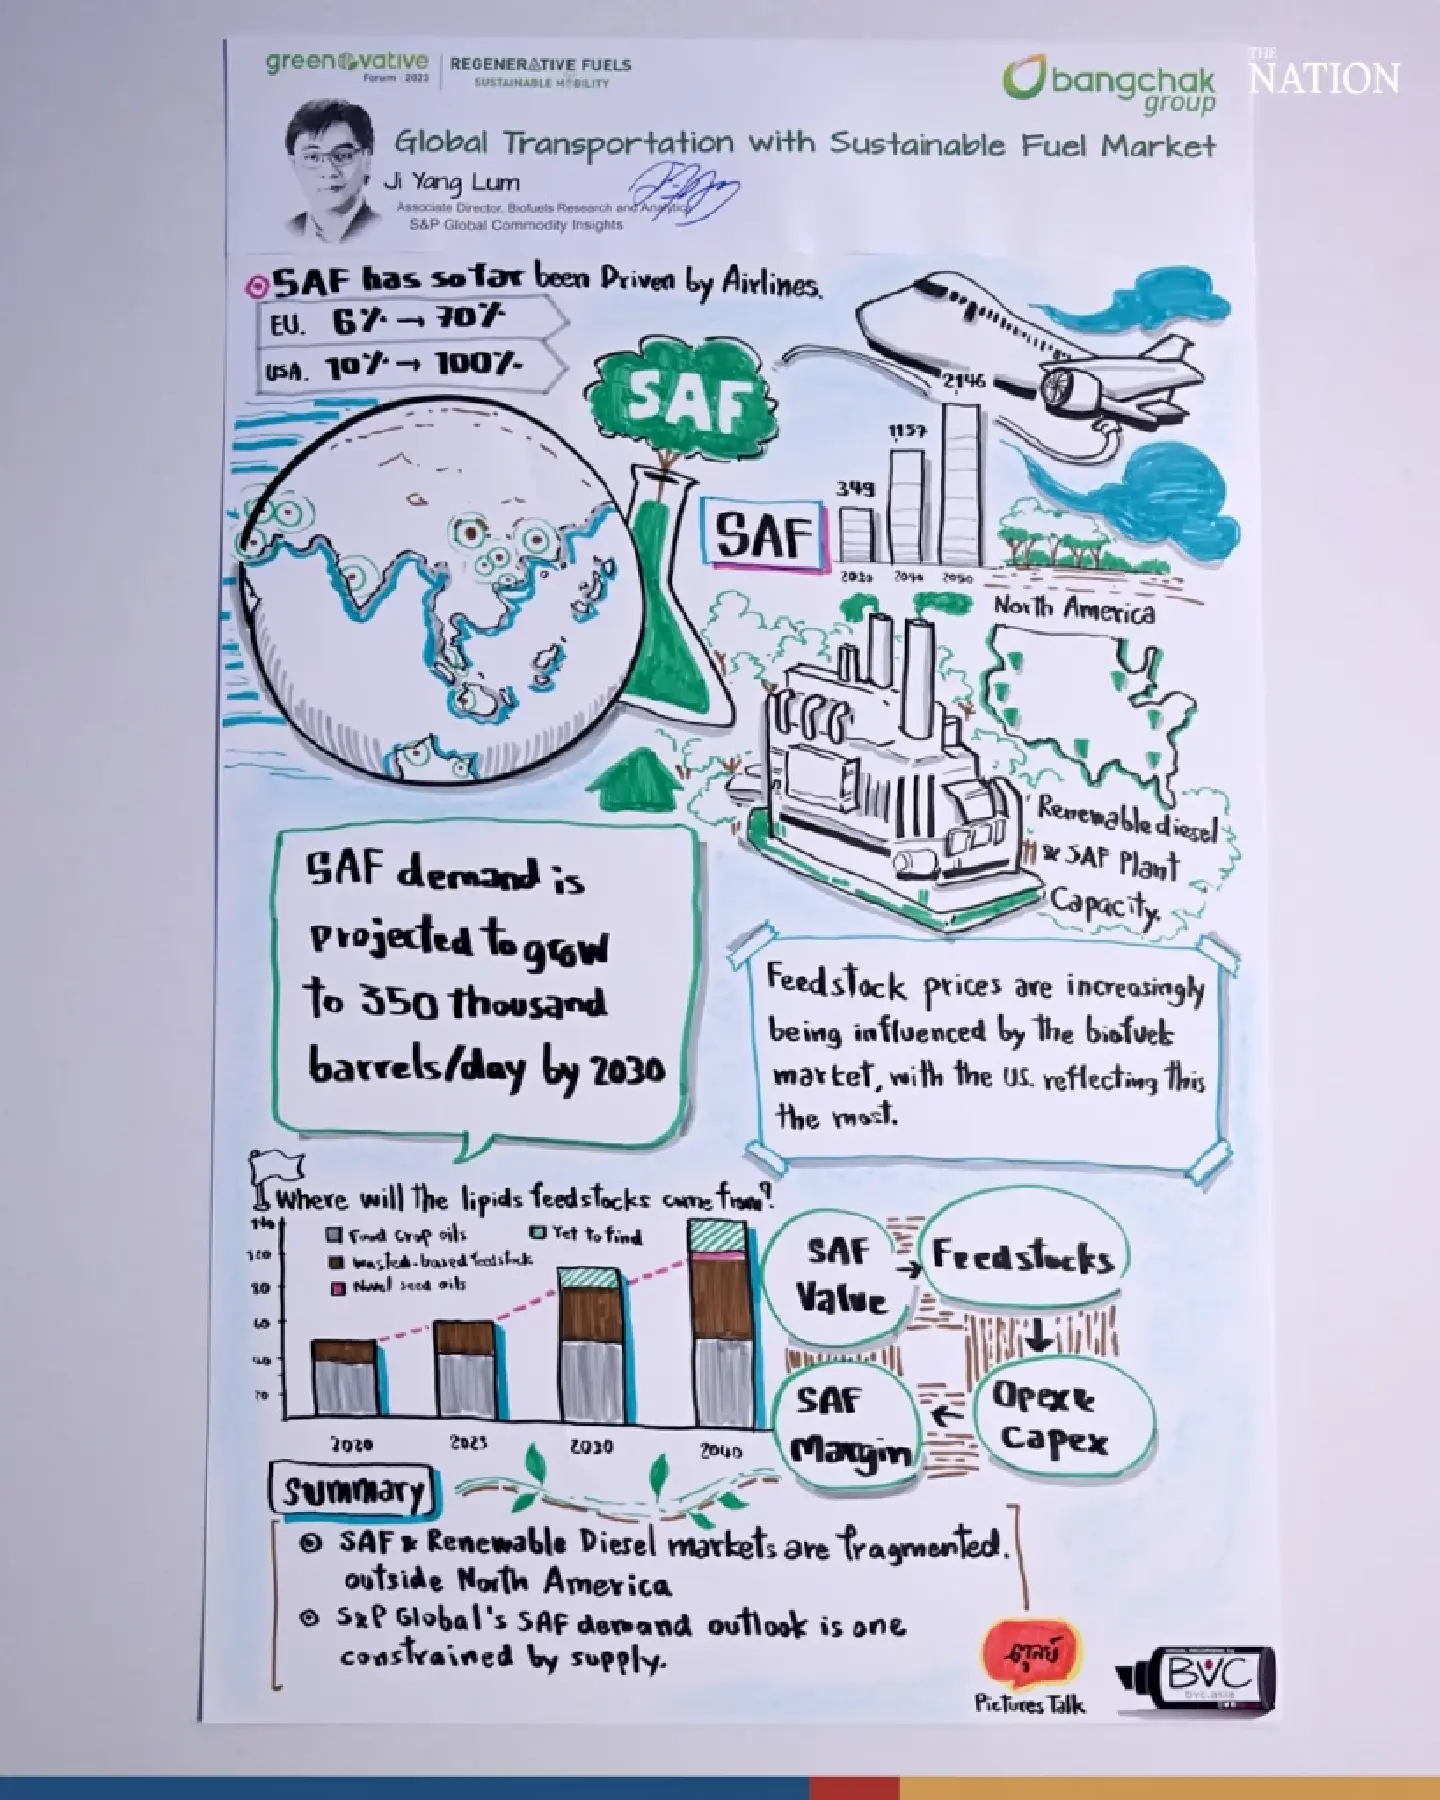 greenovative
Forum 2023
REGENERATIVE FUELS
SUSTAINABLE MOBILITY
bangchak
group
THE
NATION
Global Transportation with Sustainable Fuel Market
Ji Yang Lum
Associate Director, Biofuels Research and Analytics
S&P Global Commodity Insights
SAF has so far been Driven by Airlines.
EU. 6% → 70%
USA. 10% → 100%
SAF
2146
1157
349
SAF
2030 2040 2050
North America
Renewable diesel
& SAF Plant
Capacity.
SAF demand is
projected to grow
to 350 thousand
barrels/day by 2030
Feedstock prices are increasingly
being influenced by the biofuels
market, with the US. reflecting this
the most.
Where will the lipids feedstocks come from?
Food crop oils
Yet to find
Wasted-based feedstock
Novel seed oils
100
80
60
40
20
2020 2025 2030 2040
SAF
Value
→
Feedstocks
↓
Opex &
Capex
←
SAF
Margin
Summary
SAF & Renewable Diesel markets are fragmented.
outside North America
S&P Global's SAF demand outlook is one
constrained by supply.
Pictures Talk
BVC
bvc.asia